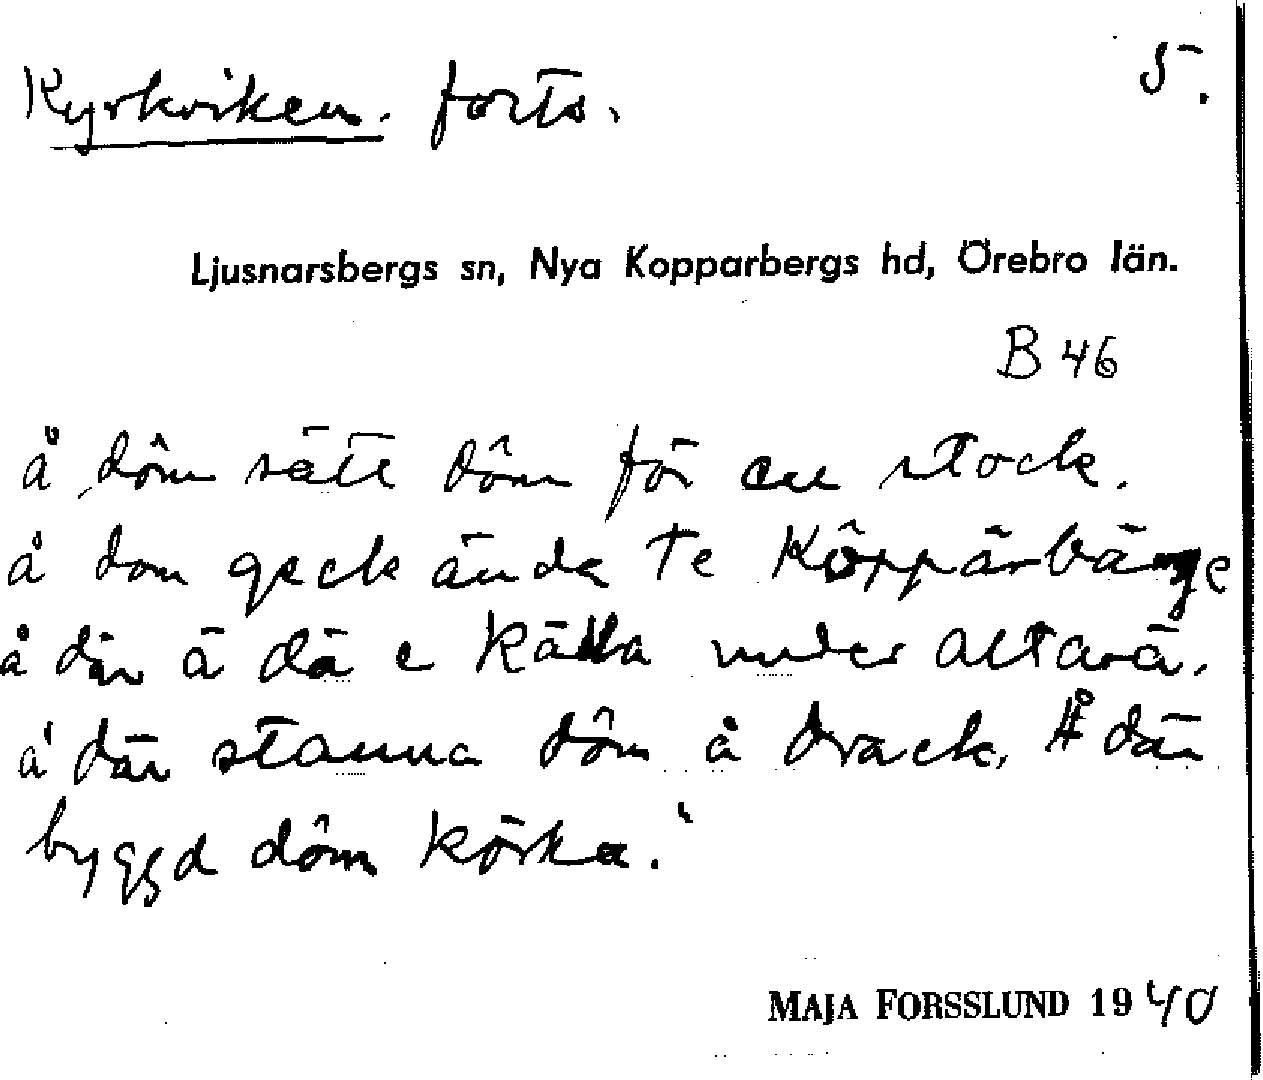 Kyrkviken. forts. 5.
Ljusnarsbergs sn, Nya Kopparbergs hd, Örebro län.
B 46
å döm sätt döm för en stock.
å dom geck ända te Köppärbärge
å där ä dä e källa under altarä.
å där stanna döm å drack, Å där
byggd döm körka."
MAJA FORSSLUND 1940